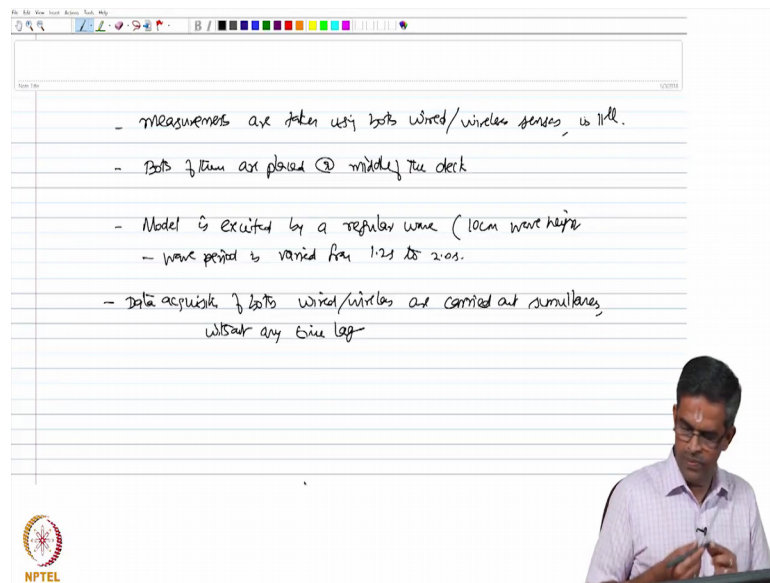 File Edit View Insert Actions Tools Help
B I
Note Title
1/3/2018
- measurements are taken using both wired/wireless senses, in 11el.
- Both of them are placed @ middle of the deck
- Model is excited by a regular wave (10cm wave height
- wave period is varied from 1.2s to 2.0s.
- Data acquisition of both wired/wireless are carried out simultaneously
without any time lag
NPTEL